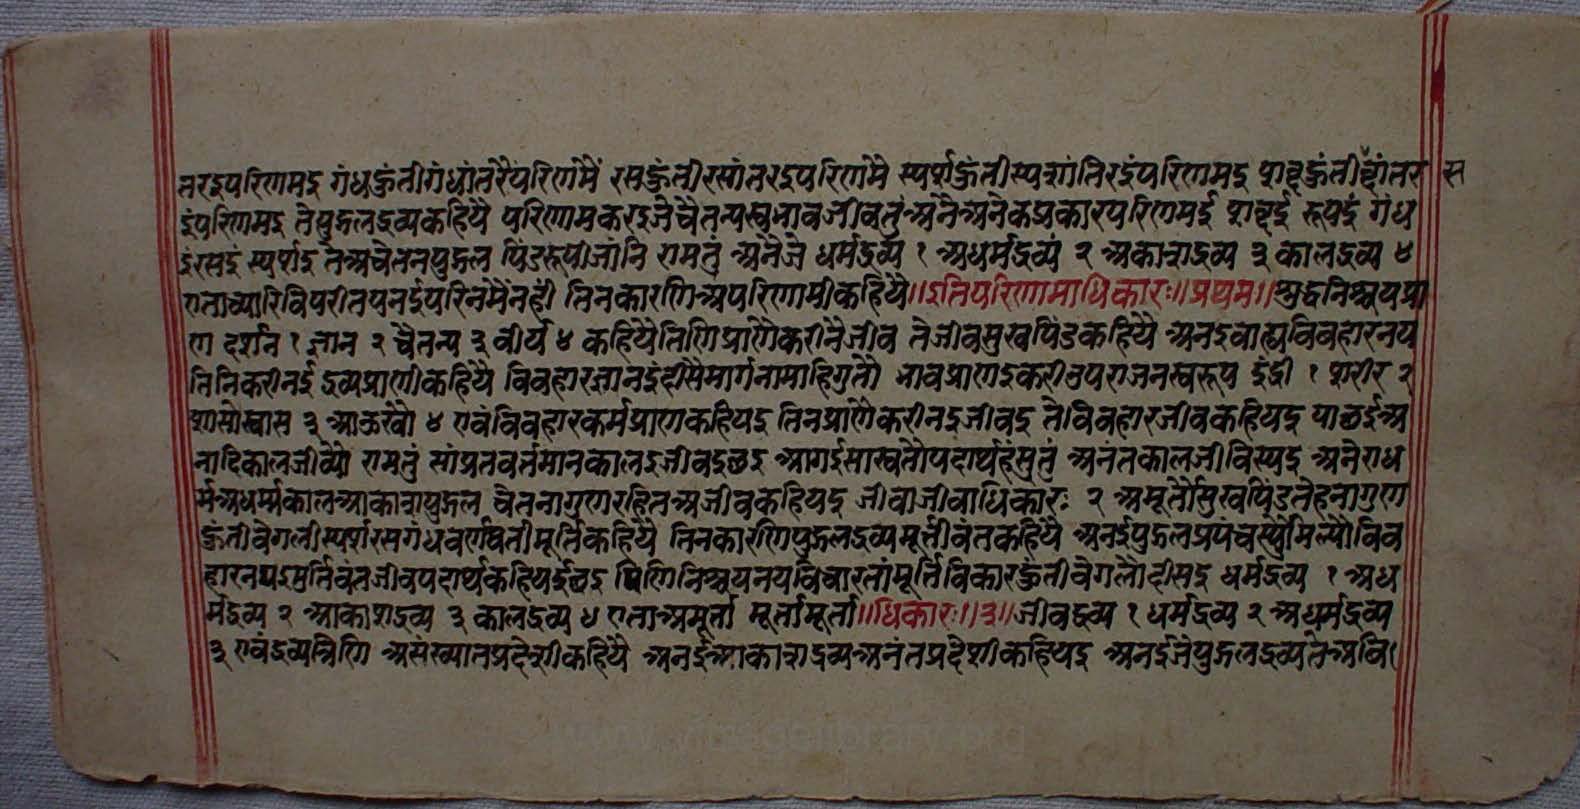 तरइपरिणमइ गंधहुंती गंधांतरैपरिणमै रसहुंती रसांतरइपरिणमै स्पर्शहुंती स्पर्शांतिरइंपरिणमइ शब्दहुंती ब्दांतर स
इंपरिणमइ तेपुद्गलद्रव्यकहियै परिणामकरइजेचैतन्यस्वभावजीवतुं अनेअनेकप्रकारपरिणमई शब्दई रूपइं गंध
इंरसइं स्पर्शइ तेअचेतनपुद्गल पिंडरूपीजांनि एमतुं अनेजे धर्मद्रव्य १ अधर्मद्रव्यं २ अकाशद्रव्य ३ कालद्रव्य ४
एताच्यारिविपरीतपनईपरिनमैनही तिनकारणिअपरिणामीकहियै॥इतिपरिणामाधिकारः॥प्रथम॥शुद्धनिश्चयप्रा
ण दर्शन १ ज्ञान २ चैतन्य ३ वीर्य ४ कहियैतिणिप्राणैकरीनैजीव तेजीवसुखपिंडकहियै अनइवाह्यविवहारनय
तिनिकरीनई द्रव्यप्राणीकहियै विवहारज्ञानइंहीसैमार्गनामाहिगुतौ भावप्राणइकरीउपराजनस्वरूप इंद्री १ शरीर २
शासोस्वास ३ आऊखौ ४ एवंविवहारकर्मप्राणकहियइ तिनप्राणैकरीनइजीवइ तेविवहारजीवकहियइ पाछईअ
नादिकालजीव्यो एमतुं सांप्रतवर्तमानकालइजीवइछइ आगईसास्वतौपदार्थहंसुतुं अनंतकालजीविस्यइ अनेराध
र्मअधर्म्मकालआकाशपुद्गल चेतनागुणरहितअजीवकहियइ जीवाजीवाधिकारः २ अमूर्तौसुखपिंडतेहनागुण
हुंतीवेगलीस्पर्शरसगंधवर्णवतीमूर्तिकहियै तिनकारणिपुद्गलद्रव्यमूर्तीवंतकहियै अनईपुद्गलप्रपंचस्युंमिल्यौविव
हारनयइमुर्तिवंतजीवपदार्थकहियईछइ पिणिनिश्चयनयविचारतांमूर्तिविकारहुंतीवेगलौदीसइ धर्मद्रव्य १ अध
र्मद्रव्य २ आकाशद्रव्य ३ कालद्रव्य ४ एताअमूर्ता मूर्तामूर्ता॥धिकारः॥३॥जीवद्रव्य १ धर्मद्रव्य २ अधर्मद्रव्य
३ एवंद्रव्यत्रिणि असंख्यातप्रदेशीकहियै अनईआकाशद्रव्यअनंतप्रदेशीकहियइ अनईजेपुद्गलद्रव्यतेअवि